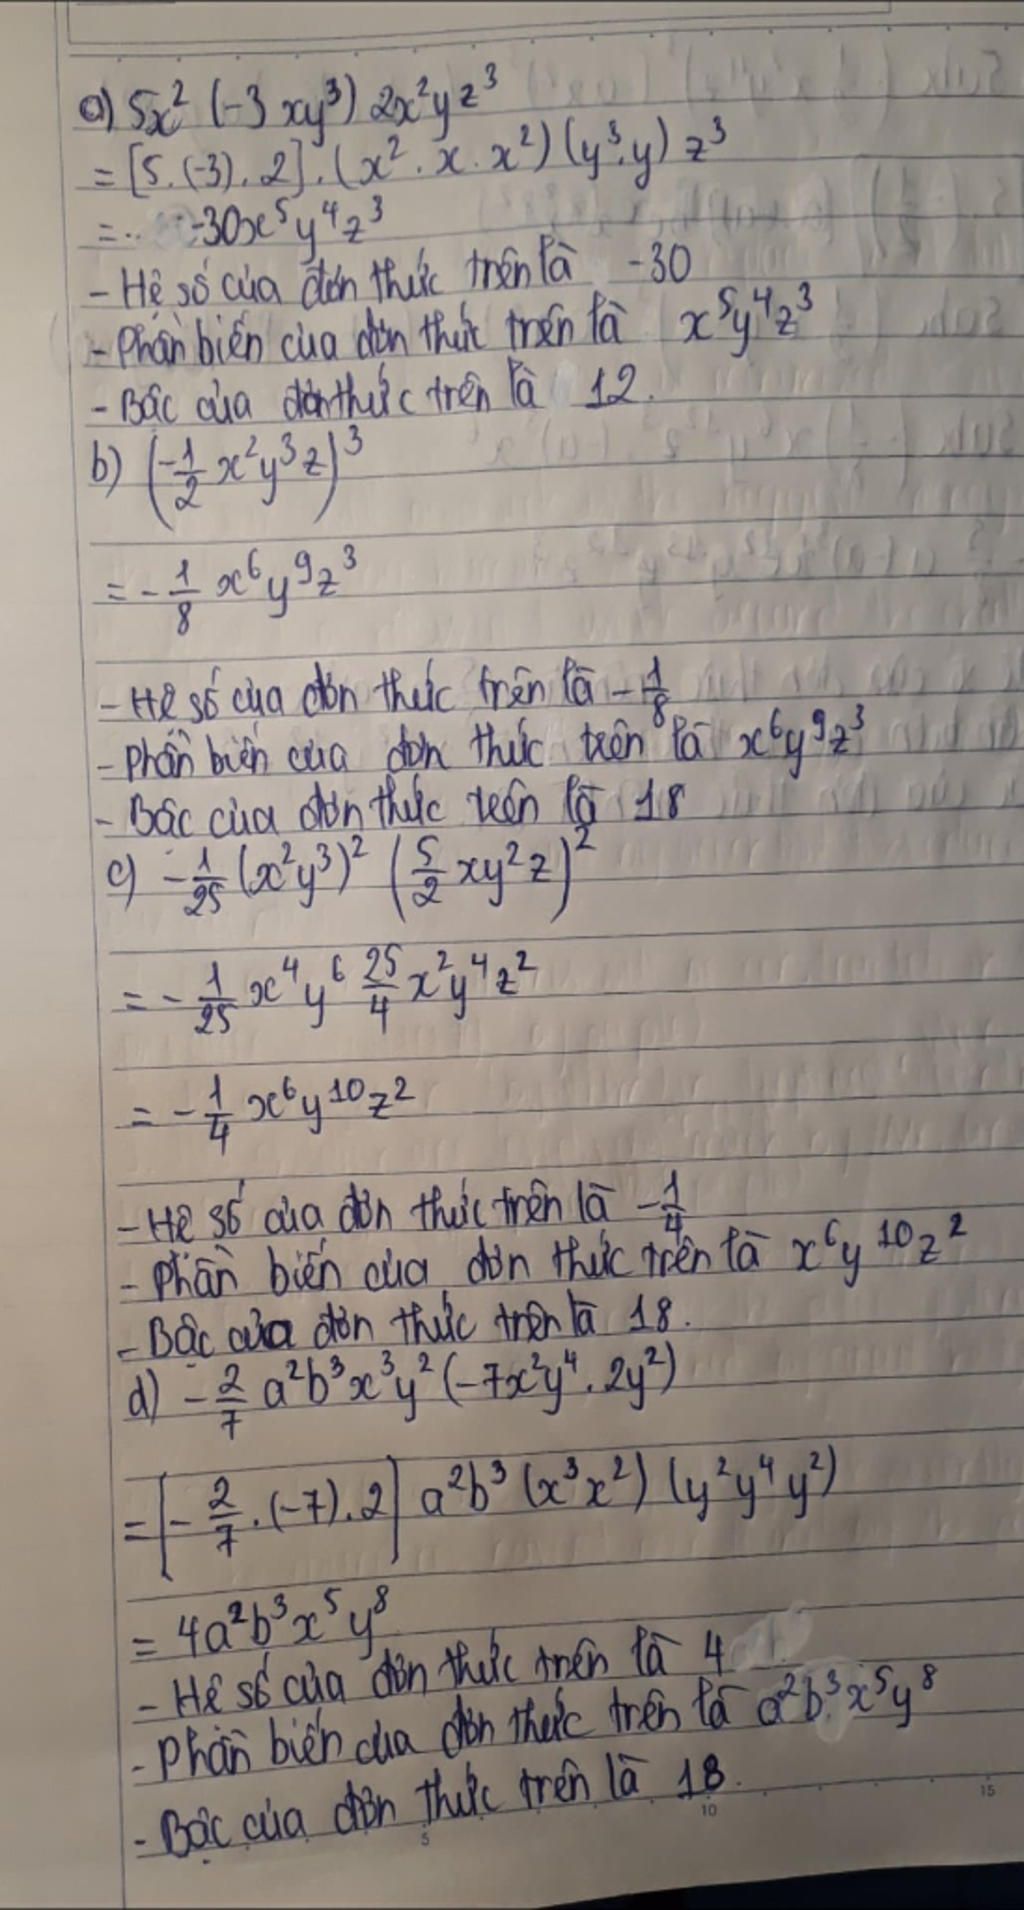 a) 5x² (-3 xy³) 2x²yz³
= [5.(-3).2].(x².x.x²)(y³.y) z³
= -30x⁵y⁴z³
- Hệ số của đơn thức trên là -30
- Phần biến của đơn thức trên là x⁵y⁴z³
- Bậc của đơn thức trên là 12.
b) (-1/2 x²y³z)³
= -1/8 x⁶y⁹z³
- Hệ số của đơn thức trên là -1/8
- Phần biến của đơn thức trên là x⁶y⁹z³
- Bậc của đơn thức trên là 18
c) -1/25 (x²y³)² (5/2 xy²z)²
= -1/25 x⁴y⁶ 25/4 x²y⁴z²
= -1/4 x⁶y¹⁰z²
- Hệ số của đơn thức trên là -1/4
- Phần biến của đơn thức trên là x⁶y¹⁰z²
- Bậc của đơn thức trên là 18.
d) -2/7 a²b³x³y² (-7x²y⁴.2y²)
= [-2/7.(-7).2] a²b³ (x³x²) (y²y⁴y²)
= 4a²b³x⁵y⁸
- Hệ số của đơn thức trên là 4
- Phần biến của đơn thức trên là a²b³x⁵y⁸
- Bậc của đơn thức trên là 18.
5 10 15